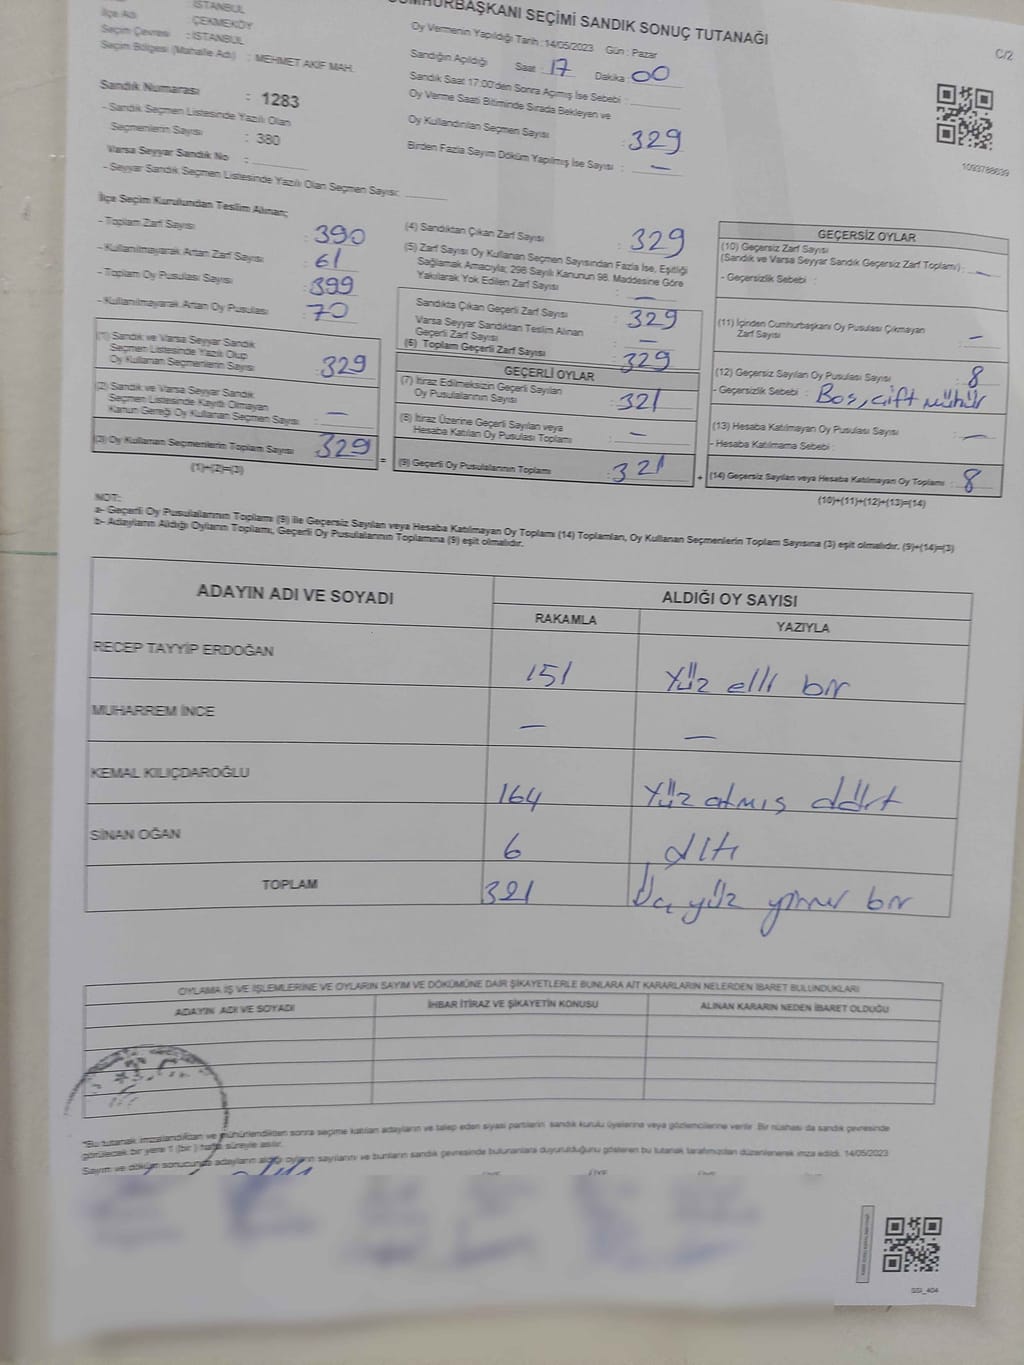 İSTANBUL
CUMHURBAŞKANI SEÇİMİ SANDIK SONUÇ TUTANAĞI
C/2
İlçe Adı : ÇEKMEKÖY
Seçim Çevresi : İSTANBUL
Seçim Bölgesi (Mahalle Adı) : MEHMET AKİF MAH.
Oy Vermenin Yapıldığı Tarih : 14/05/2023 Gün : Pazar
Sandığın Açıldığı Saat : 17 Dakika : 00
Sandık Saat 17:00'den Sonra Açılmış İse Sebebi :
Oy Verme Saati Bitiminde Sırada Bekleyen ve
Oy Kullandırılan Seçmen Sayısı : 329
Birden Fazla Sayım Döküm Yapılmış İse Sayısı : —
Sandık Numarası : 1283
- Sandık Seçmen Listesinde Yazılı Olan
Seçmenlerin Sayısı : 380
Varsa Seyyar Sandık No :
- Seyyar Sandık Seçmen Listesinde Yazılı Olan Seçmen Sayısı:
1093788639
İlçe Seçim Kurulundan Teslim Alınan;
- Toplam Zarf Sayısı : 390
- Kullanılmayarak Artan Zarf Sayısı : 61
- Toplam Oy Pusulası Sayısı : 399
- Kullanılmayarak Artan Oy Pusulası : 70
(1) Sandık ve Varsa Seyyar Sandık
Seçmen Listesinde Yazılı Olup
Oy Kullanan Seçmenlerin Sayısı : 329
(2) Sandık ve Varsa Seyyar Sandık
Seçmen Listesinde Kayıtlı Olmayan
Kanun Gereği Oy Kullanan Seçmen Sayısı : —
(3) Oy Kullanan Seçmenlerin Toplam Sayısı : 329
(1)+(2)=(3)
(4) Sandıktan Çıkan Zarf Sayısı : 329
(5) Zarf Sayısı Oy Kullanan Seçmen Sayısından Fazla İse, Eşitliği
Sağlamak Amacıyla; 298 Sayılı Kanunun 98. Maddesine Göre
Yakılarak Yok Edilen Zarf Sayısı : —
Sandıkta Çıkan Geçerli Zarf Sayısı : 329
Varsa Seyyar Sandıktan Teslim Alınan
Geçerli Zarf Sayısı : —
(6) Toplam Geçerli Zarf Sayısı : 329
GEÇERLİ OYLAR
(7) İtiraz Edilmeksizin Geçerli Sayılan
Oy Pusulasının Sayısı : 321
(8) İtiraz Üzerine Geçerli Sayılan veya
Hesaba Katılan Oy Pusulası Toplamı : —
= (9) Geçerli Oy Pusulalarının Toplamı : 321
GEÇERSİZ OYLAR
(10) Geçersiz Zarf Sayısı
(Sandık ve Varsa Seyyar Sandık Geçersiz Zarf Toplamı) : —
- Geçersizlik Sebebi :
(11) İçinden Cumhurbaşkanı Oy Pusulası Çıkmayan
Zarf Sayısı : —
(12) Geçersiz Sayılan Oy Pusulası Sayısı : 8
- Geçersizlik Sebebi : Boş, çift mühür
(13) Hesaba Katılmayan Oy Pusulası Sayısı : —
- Hesaba Katılmama Sebebi :
+ (14) Geçersiz Sayılan veya Hesaba Katılmayan Oy Toplamı : 8
(10)+(11)+(12)+(13)=(14)
NOT:
a- Geçerli Oy Pusulalarının Toplamı (9) ile Geçersiz Sayılan veya Hesaba Katılmayan Oy Toplamı (14) Toplamları, Oy Kullanan Seçmenlerin Toplam Sayısına (3) eşit olmalıdır. (9)+(14)=(3)
b- Adayların Aldığı Oyların Toplamı, Geçerli Oy Pusulalarının Toplamına (9) eşit olmalıdır.
ADAYIN ADI VE SOYADI
ALDIĞI OY SAYISI
RAKAMLA YAZIYLA
RECEP TAYYİP ERDOĞAN 151 Yüz elli bir
MUHARREM İNCE — —
KEMAL KILIÇDAROĞLU 164 Yüz atmış dört
SİNAN OĞAN 6 altı
TOPLAM 321 Üç yüz yirmi bir
OYLAMA İŞ VE İŞLEMLERİNE VE OYLARIN SAYIM VE DÖKÜMÜNE DAİR ŞİKAYETLERLE BUNLARA AİT KARARLARIN NELERDEN İBARET BULUNDUKLARI
ADAYIN ADI VE SOYADI İHBAR İTİRAZ VE ŞİKAYETİN KONUSU ALINAN KARARIN NEDEN İBARET OLDUĞU
*Bu tutanak imzalandıktan ve mühürlendikten sonra seçime katılan adayların ve talep eden siyasi partilerin sandık kurulu üyelerine veya gözlemcilerine verilir. Bir nüshası da sandık çevresinde
görülecek bir yere 1 (bir ) hafta süreyle asılır.
Sayım ve döküm sonucunda adayların aldığı oyların sayılarını ve bunların sandık çevresinde bulunanlara duyurulduğunu gösteren bu tutanak tarafımızdan düzenlenerek imza edildi. 14/05/2023
SSI_404